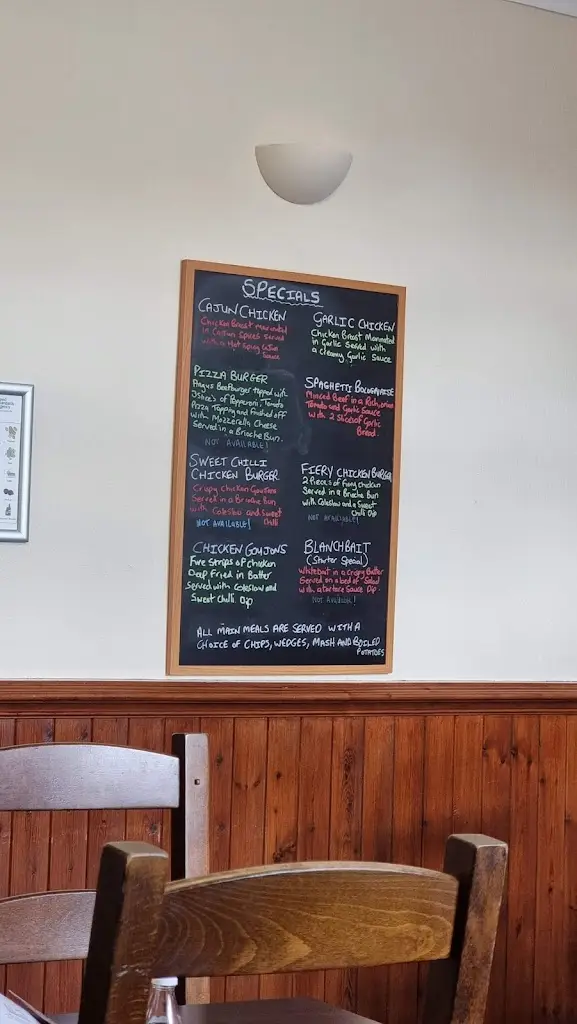 SPECIALS
CAJUN CHICKEN
Chicken Breast Marinated
in Cajun Spices served
with a Hot Spicy Cajun
Sauce
GARLIC CHICKEN
Chicken Breast Marinated
in Garlic Served with
a Creamy Garlic Sauce
PIZZA BURGER
Angus Beefburger topped with
3 slices of Pepperoni, Tomato
Pizza Topping and Finished off
with Mozzerella Cheese
Served in a Brioche Bun.
NOT AVAILABLE!
SPAGHETTI BOLOGNAISE
Minced Beef in a Rich, onion
Tomato and Garlic Sauce
with 2 Slices of Garlic
Bread.
SWEET CHILLI
CHICKEN BURGER
Crispy Chicken Goujons
Served in a Brioche bun
with Coleslaw and Sweet
Chilli
NOT AVAILABLE!
FIERY CHICKEN BURGER
2 Pieces of Fiery chicken
Served in a Brioche Bun
with Coleslaw and a Sweet
Chilli Dip
NOT AVAILABLE!
CHICKEN GOUJONS
Five Strips of Chicken
Deep Fried in Batter
Served with Coleslaw and
Sweet Chilli Dip
BLANCHBAIT
(Starter Special)
Whitebait in a Crispy Batter
Served on a bed of Salad
with a tartare Sauce Dip.
Not Available!
ALL MAIN MEALS ARE SERVED WITH A
CHOICE OF CHIPS, WEDGES, MASH AND BOILED
POTATOES